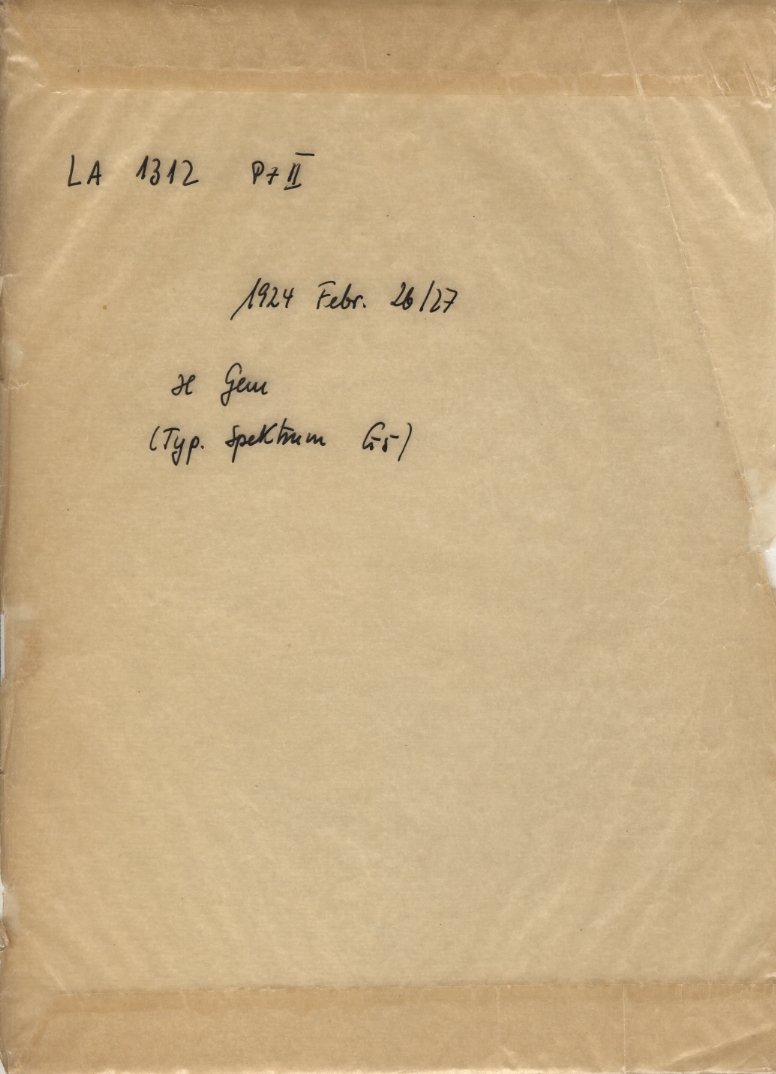 LA 1312 Pt II
1924 Febr. 26/27
ϰ Gem
(Typ. Spektrum G5)